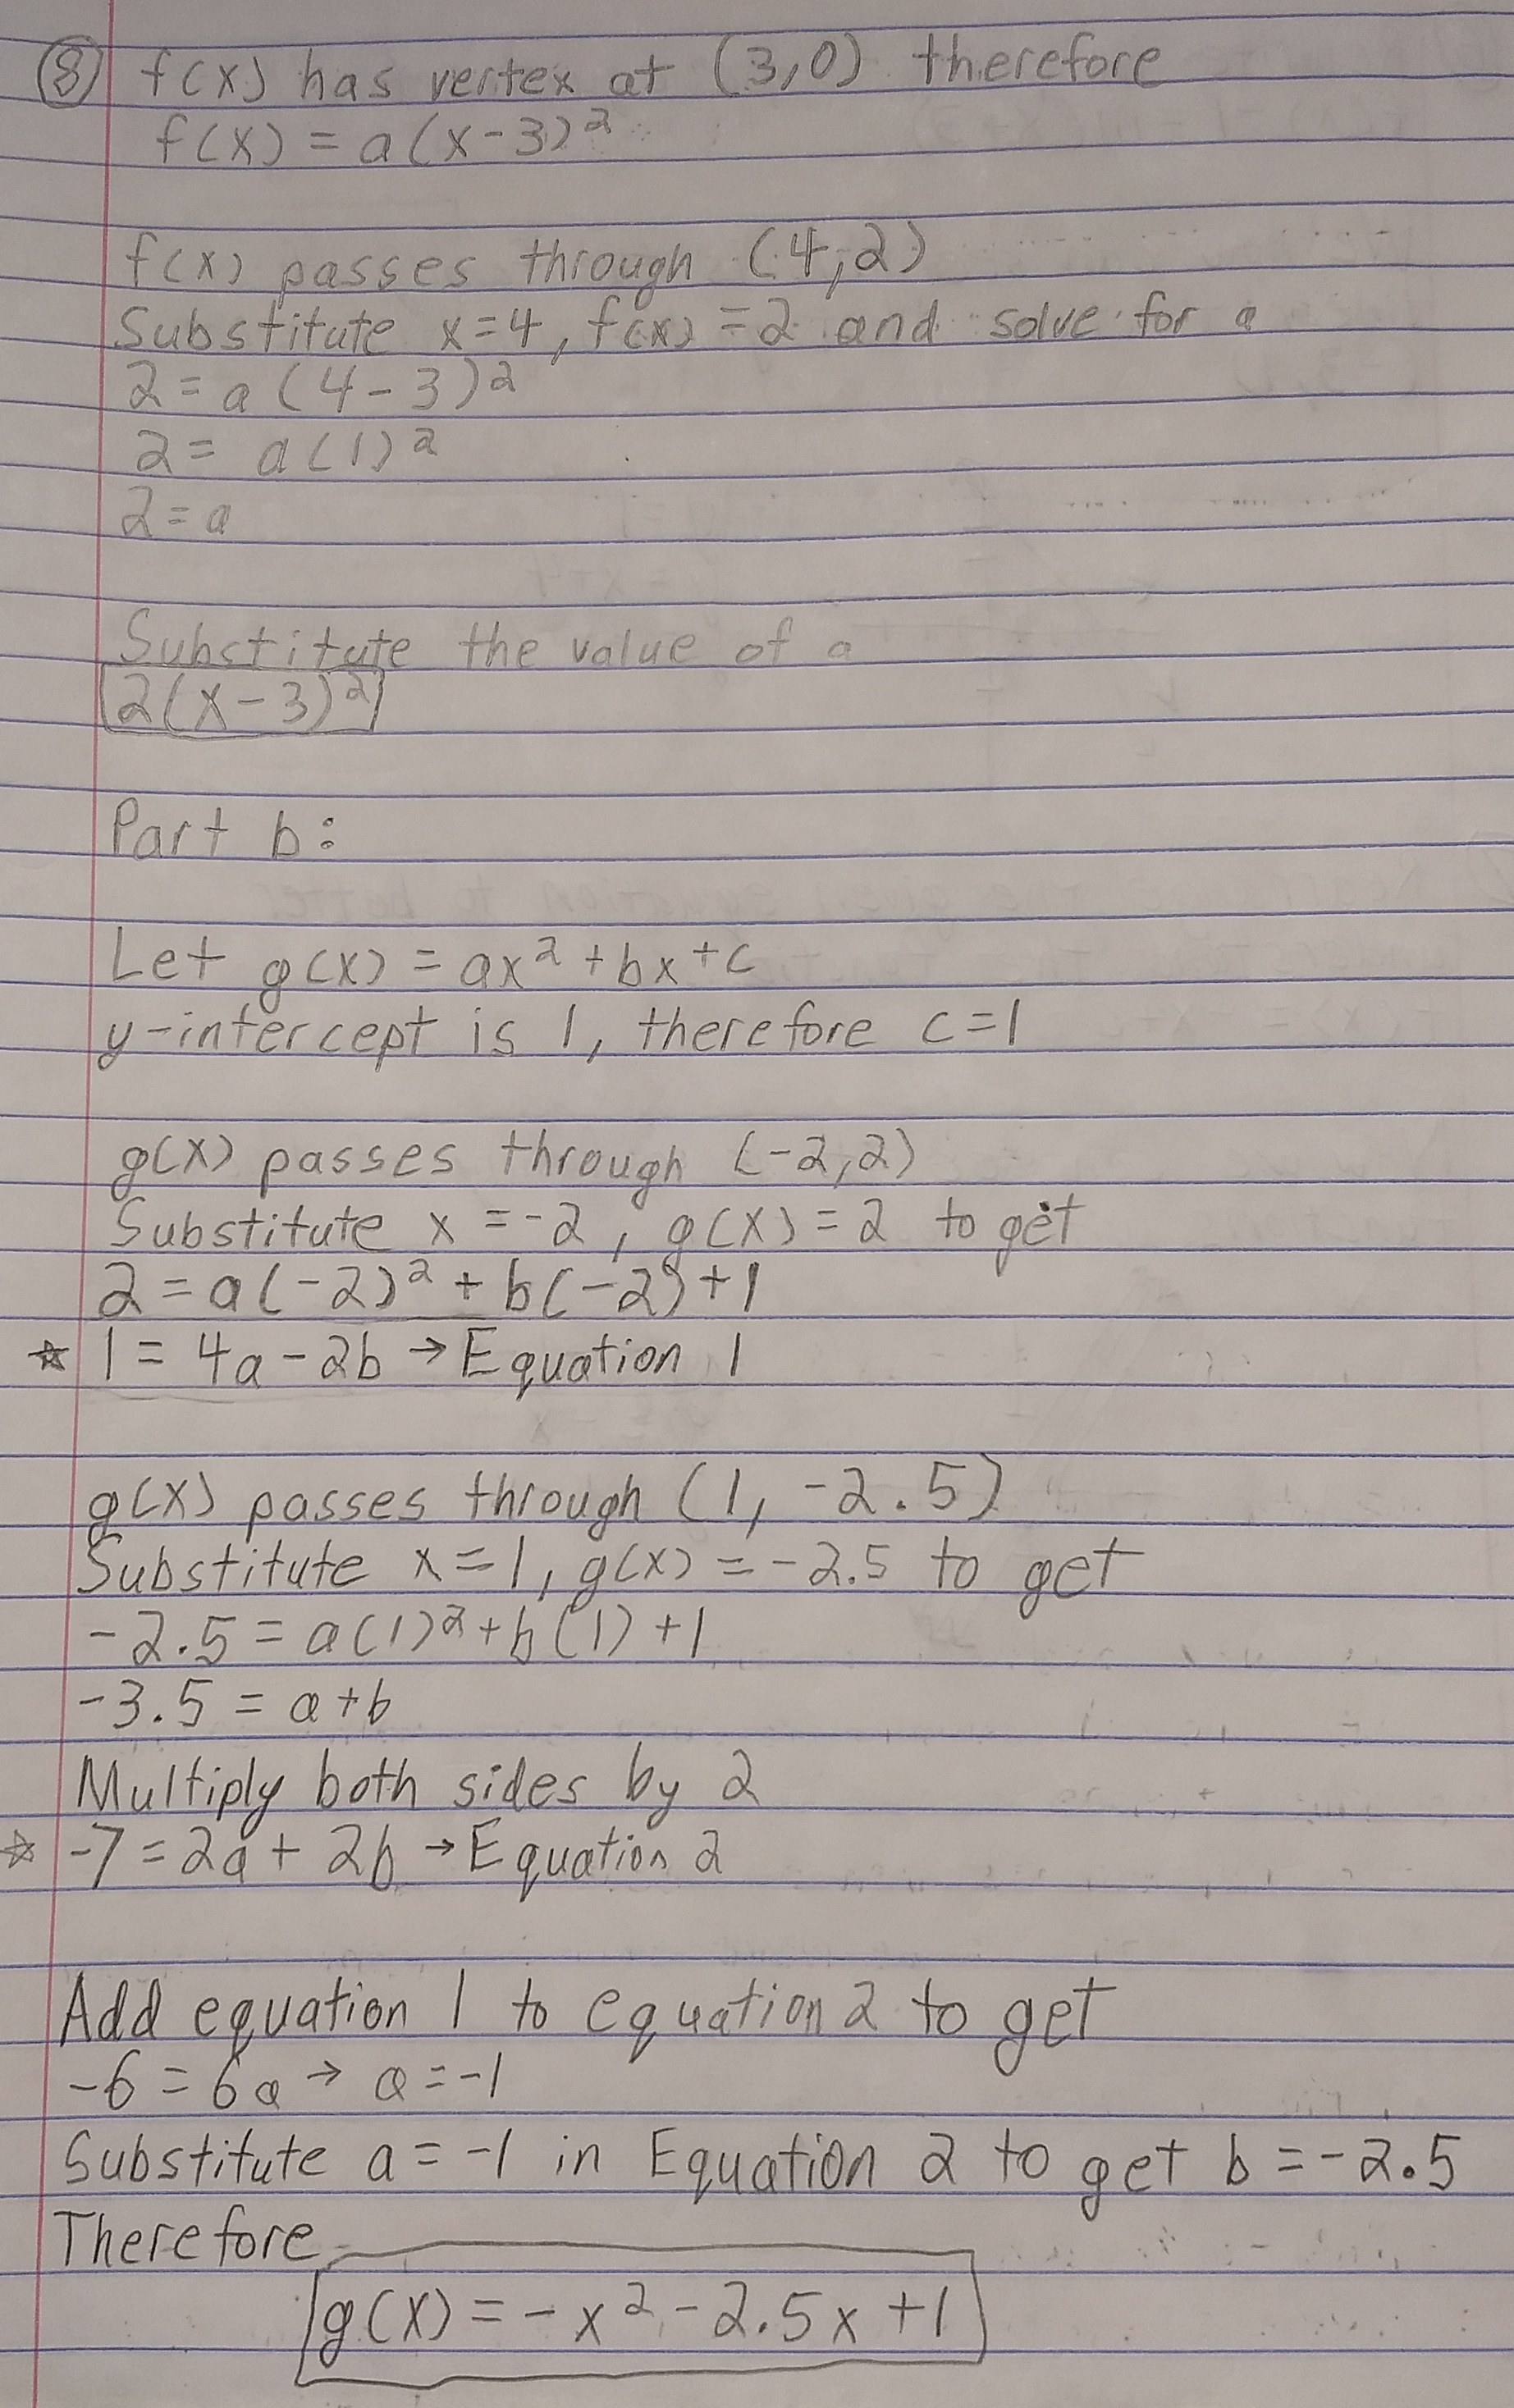 ⑧ f(x) has vertex at (3,0) therefore
f(x) = a(x-3)²
f(x) passes through (4,2)
Substitute x=4, f(x)=2 and solve for a
2 = a(4-3)²
2 = a(1)²
2=a
Substitute the value of a
2(x-3)²
Part b:
Let g(x) = ax²+bx+c
y-intercept is 1, therefore c=1
g(x) passes through (-2,2)
Substitute x = -2, g(x) = 2 to get
2 = a(-2)² + b(-2)+1
☆ 1 = 4a-2b → Equation 1
g(x) passes through (1, -2.5)
Substitute x=1, g(x) = -2.5 to get
-2.5 = a(1)²+b(1)+1
-3.5 = a+b
Multiply both sides by 2
☆ -7=2a+2b → Equation 2
Add equation 1 to equation 2 to get
-6=6a → a=-1
Substitute a=-1 in Equation 2 to get b=-2.5
Therefore
g(x) = -x²-2.5x+1